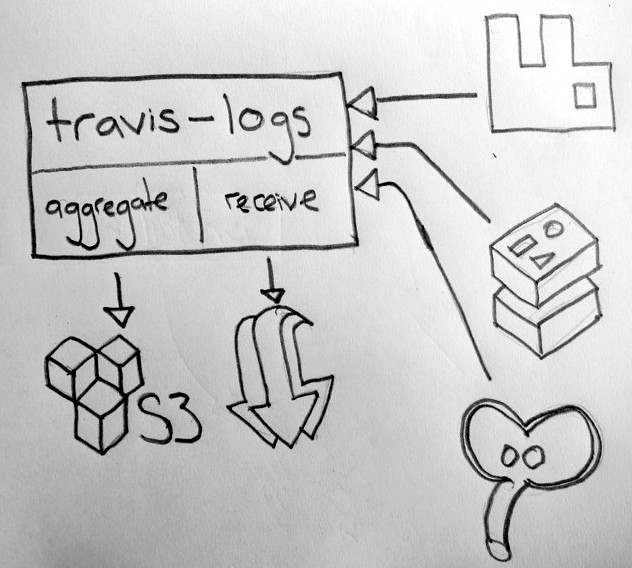 travis-logs
aggregate
receive
S3